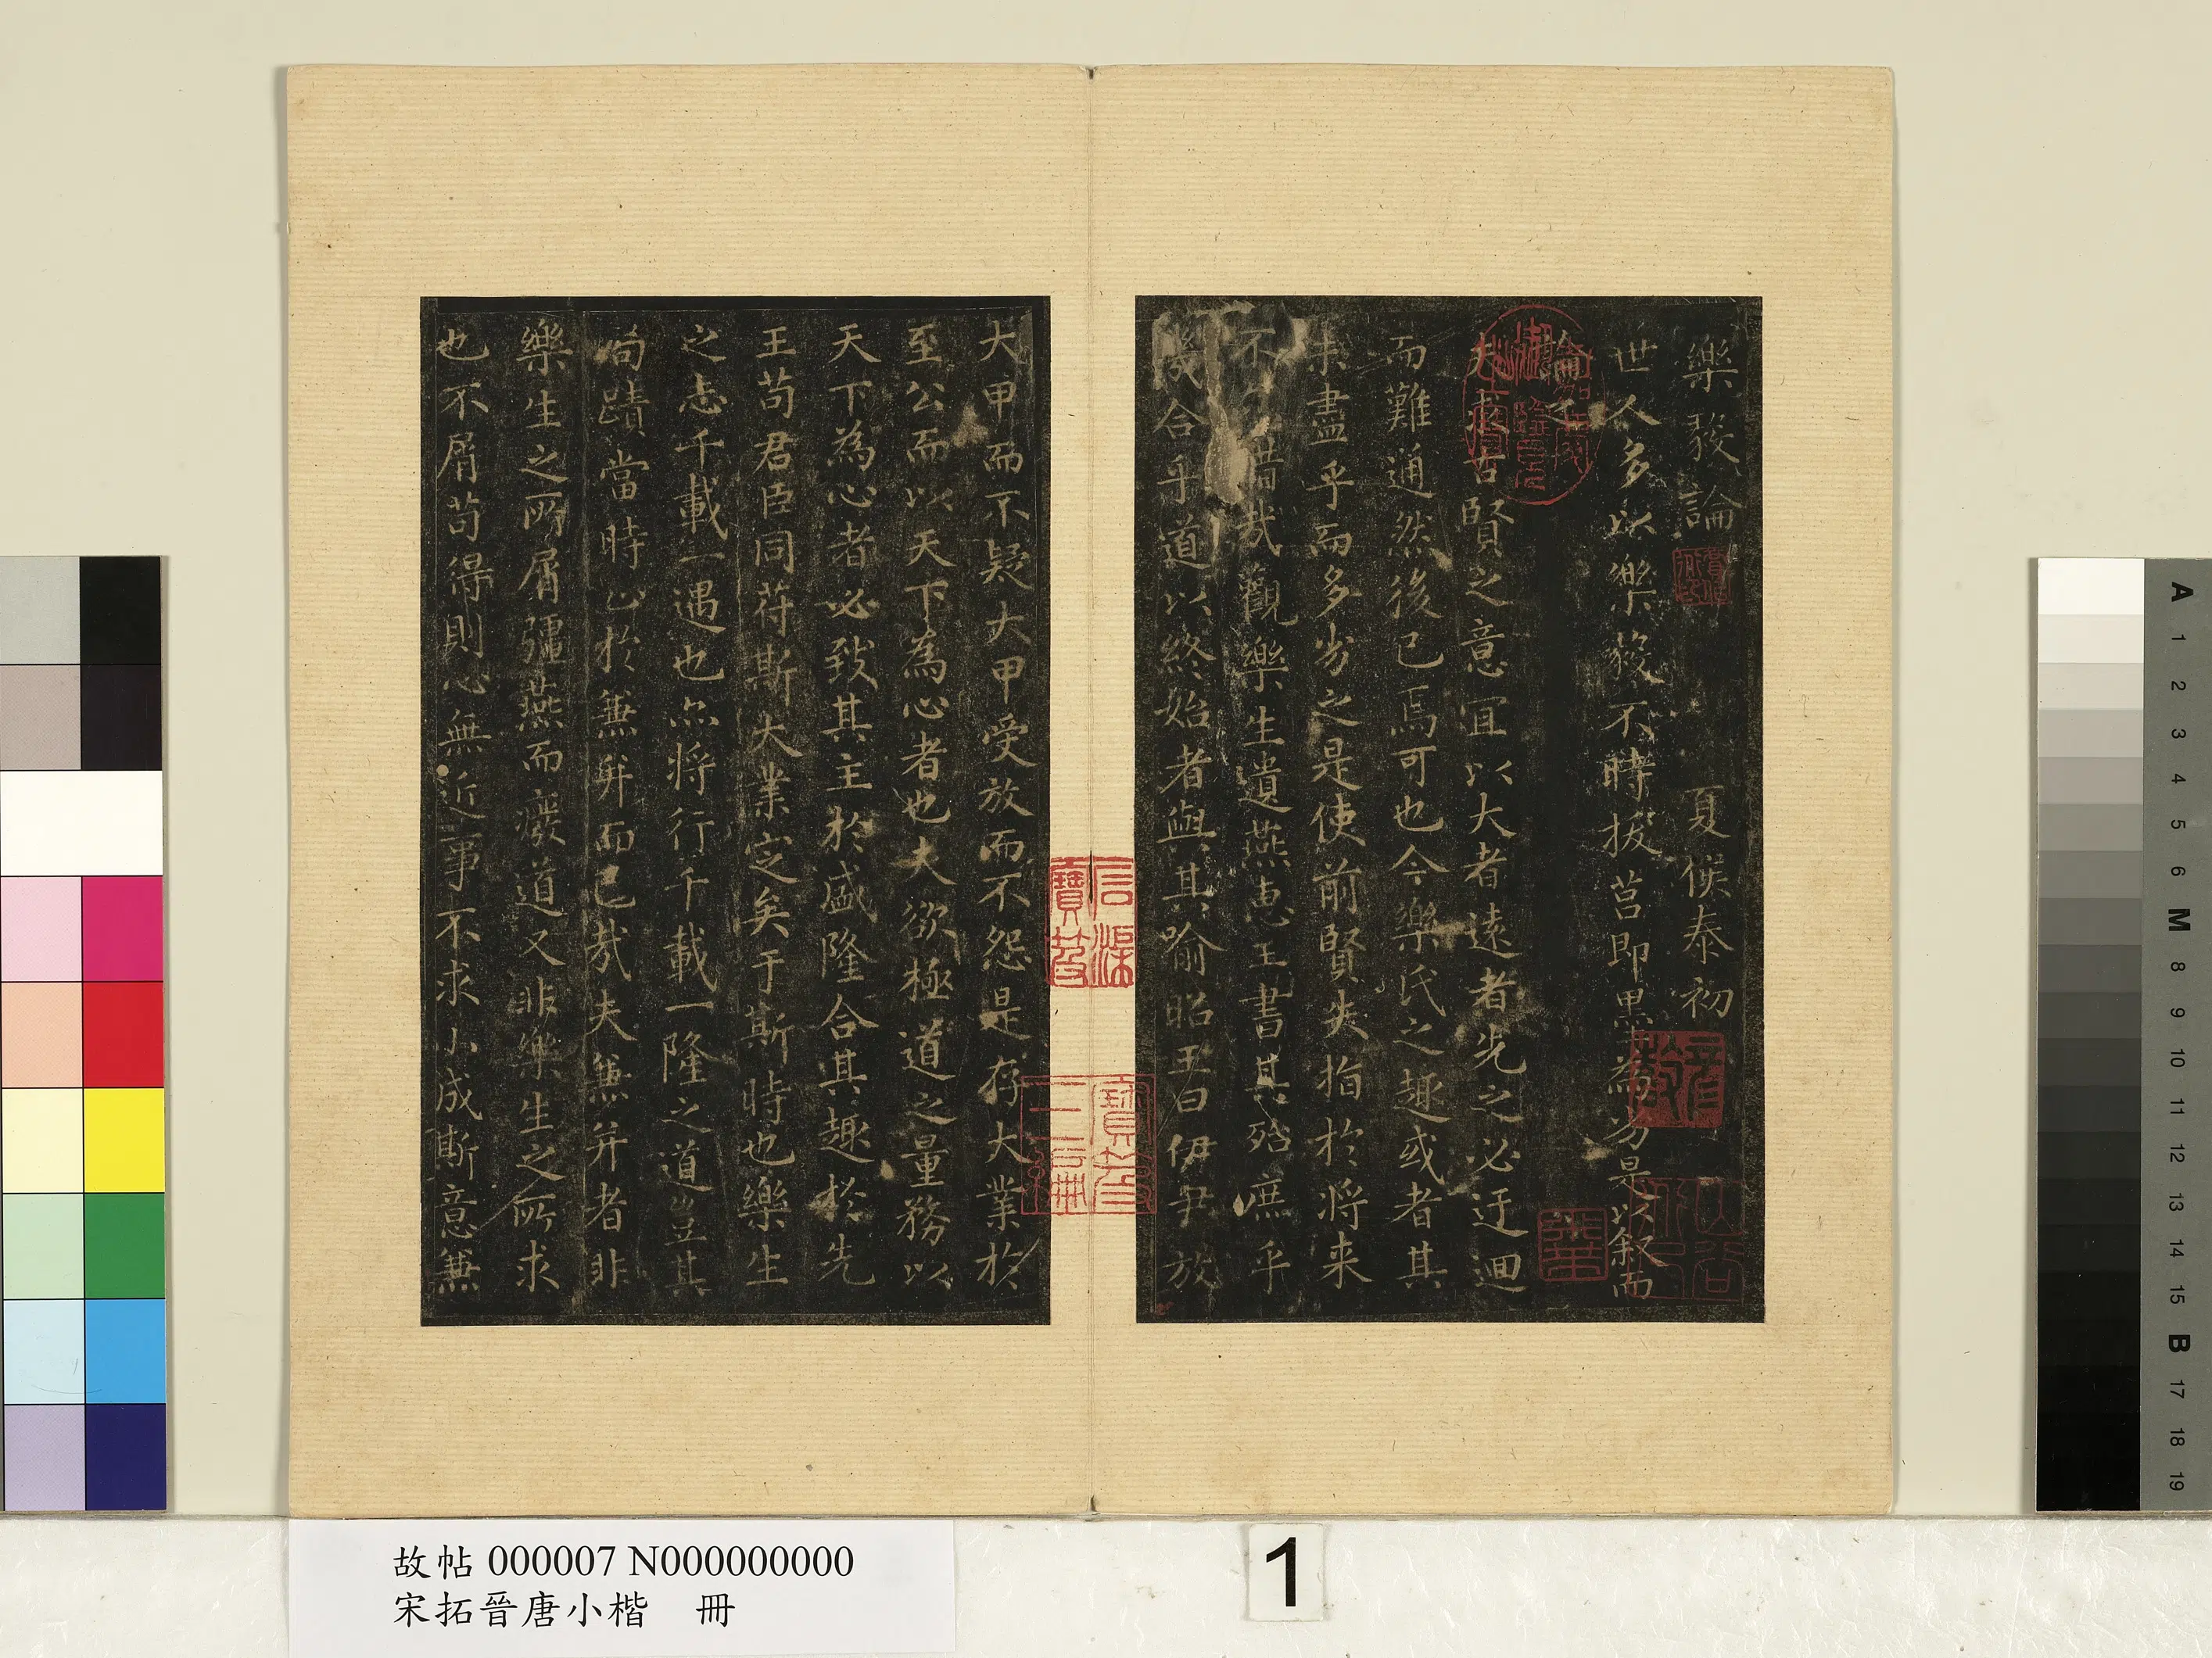 樂毅論 夏侯泰初
世人多以樂毅不時拔莒即墨為劣是以叙而
論之
夫求古賢之意宜以大者遠者先之必迂迴
而難通然後已焉可也今樂氏之趣或者其
未盡乎而多劣之是使前賢失指於將来
不惜哉觀樂生遺燕惠王書其殆庶乎
機合乎道以終始者與其喻昭王曰伊尹放
大甲而不疑大甲受放而不怨是存大業於
至公而以天下為心者也夫欲極道之量務以
天下為心者必致其主於盛隆合其趣於先
王苟君臣同苻斯大業定矣于斯時也樂生
之志千載一遇也亦將行千載一隆之道豈其
局蹟當時止於兼并而已哉夫兼并者非
樂生之所屑彊燕而癈道又非樂生之所求
也不屑苟得則心無近事不求小成斯意兼
故帖 000007 N000000000
宋拓晉唐小楷 冊
1
A
1
2
3
4
5
6
M
8
9
10
11
12
13
14
15
B
17
18
19